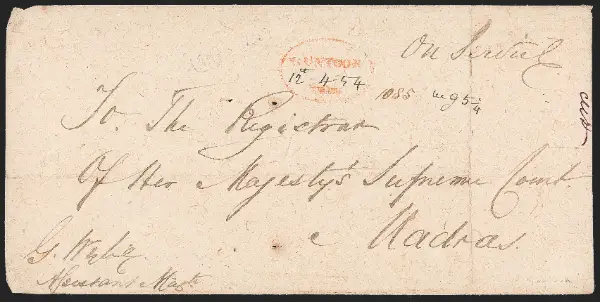 On Service
GUNTOOR
12th 4 54
1055
To. The Registrar
Of Her Majesty's Supreme Court.
Madras.
G. Wylie
Assistant Magte